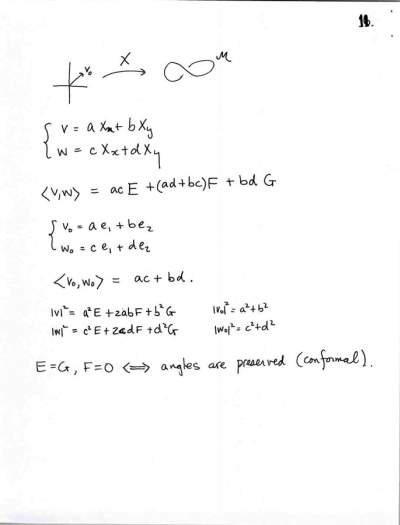 16.
v₀
X
M
{ v = a Xₓ + b Xᵧ
w = c Xₓ + d Xᵧ
⟨v,w⟩ = ac E + (ad+bc)F + bd G
{ v₀ = a e₁ + b e₂
w₀ = c e₁ + d e₂
⟨v₀,w₀⟩ = ac + bd.
|v|² = a²E + 2abF + b²G |v₀|² = a²+b²
|w|² = c²E + 2cdF + d²G |w₀|² = c²+d²
E=G, F=0 ⟺ angles are preserved (conformal).